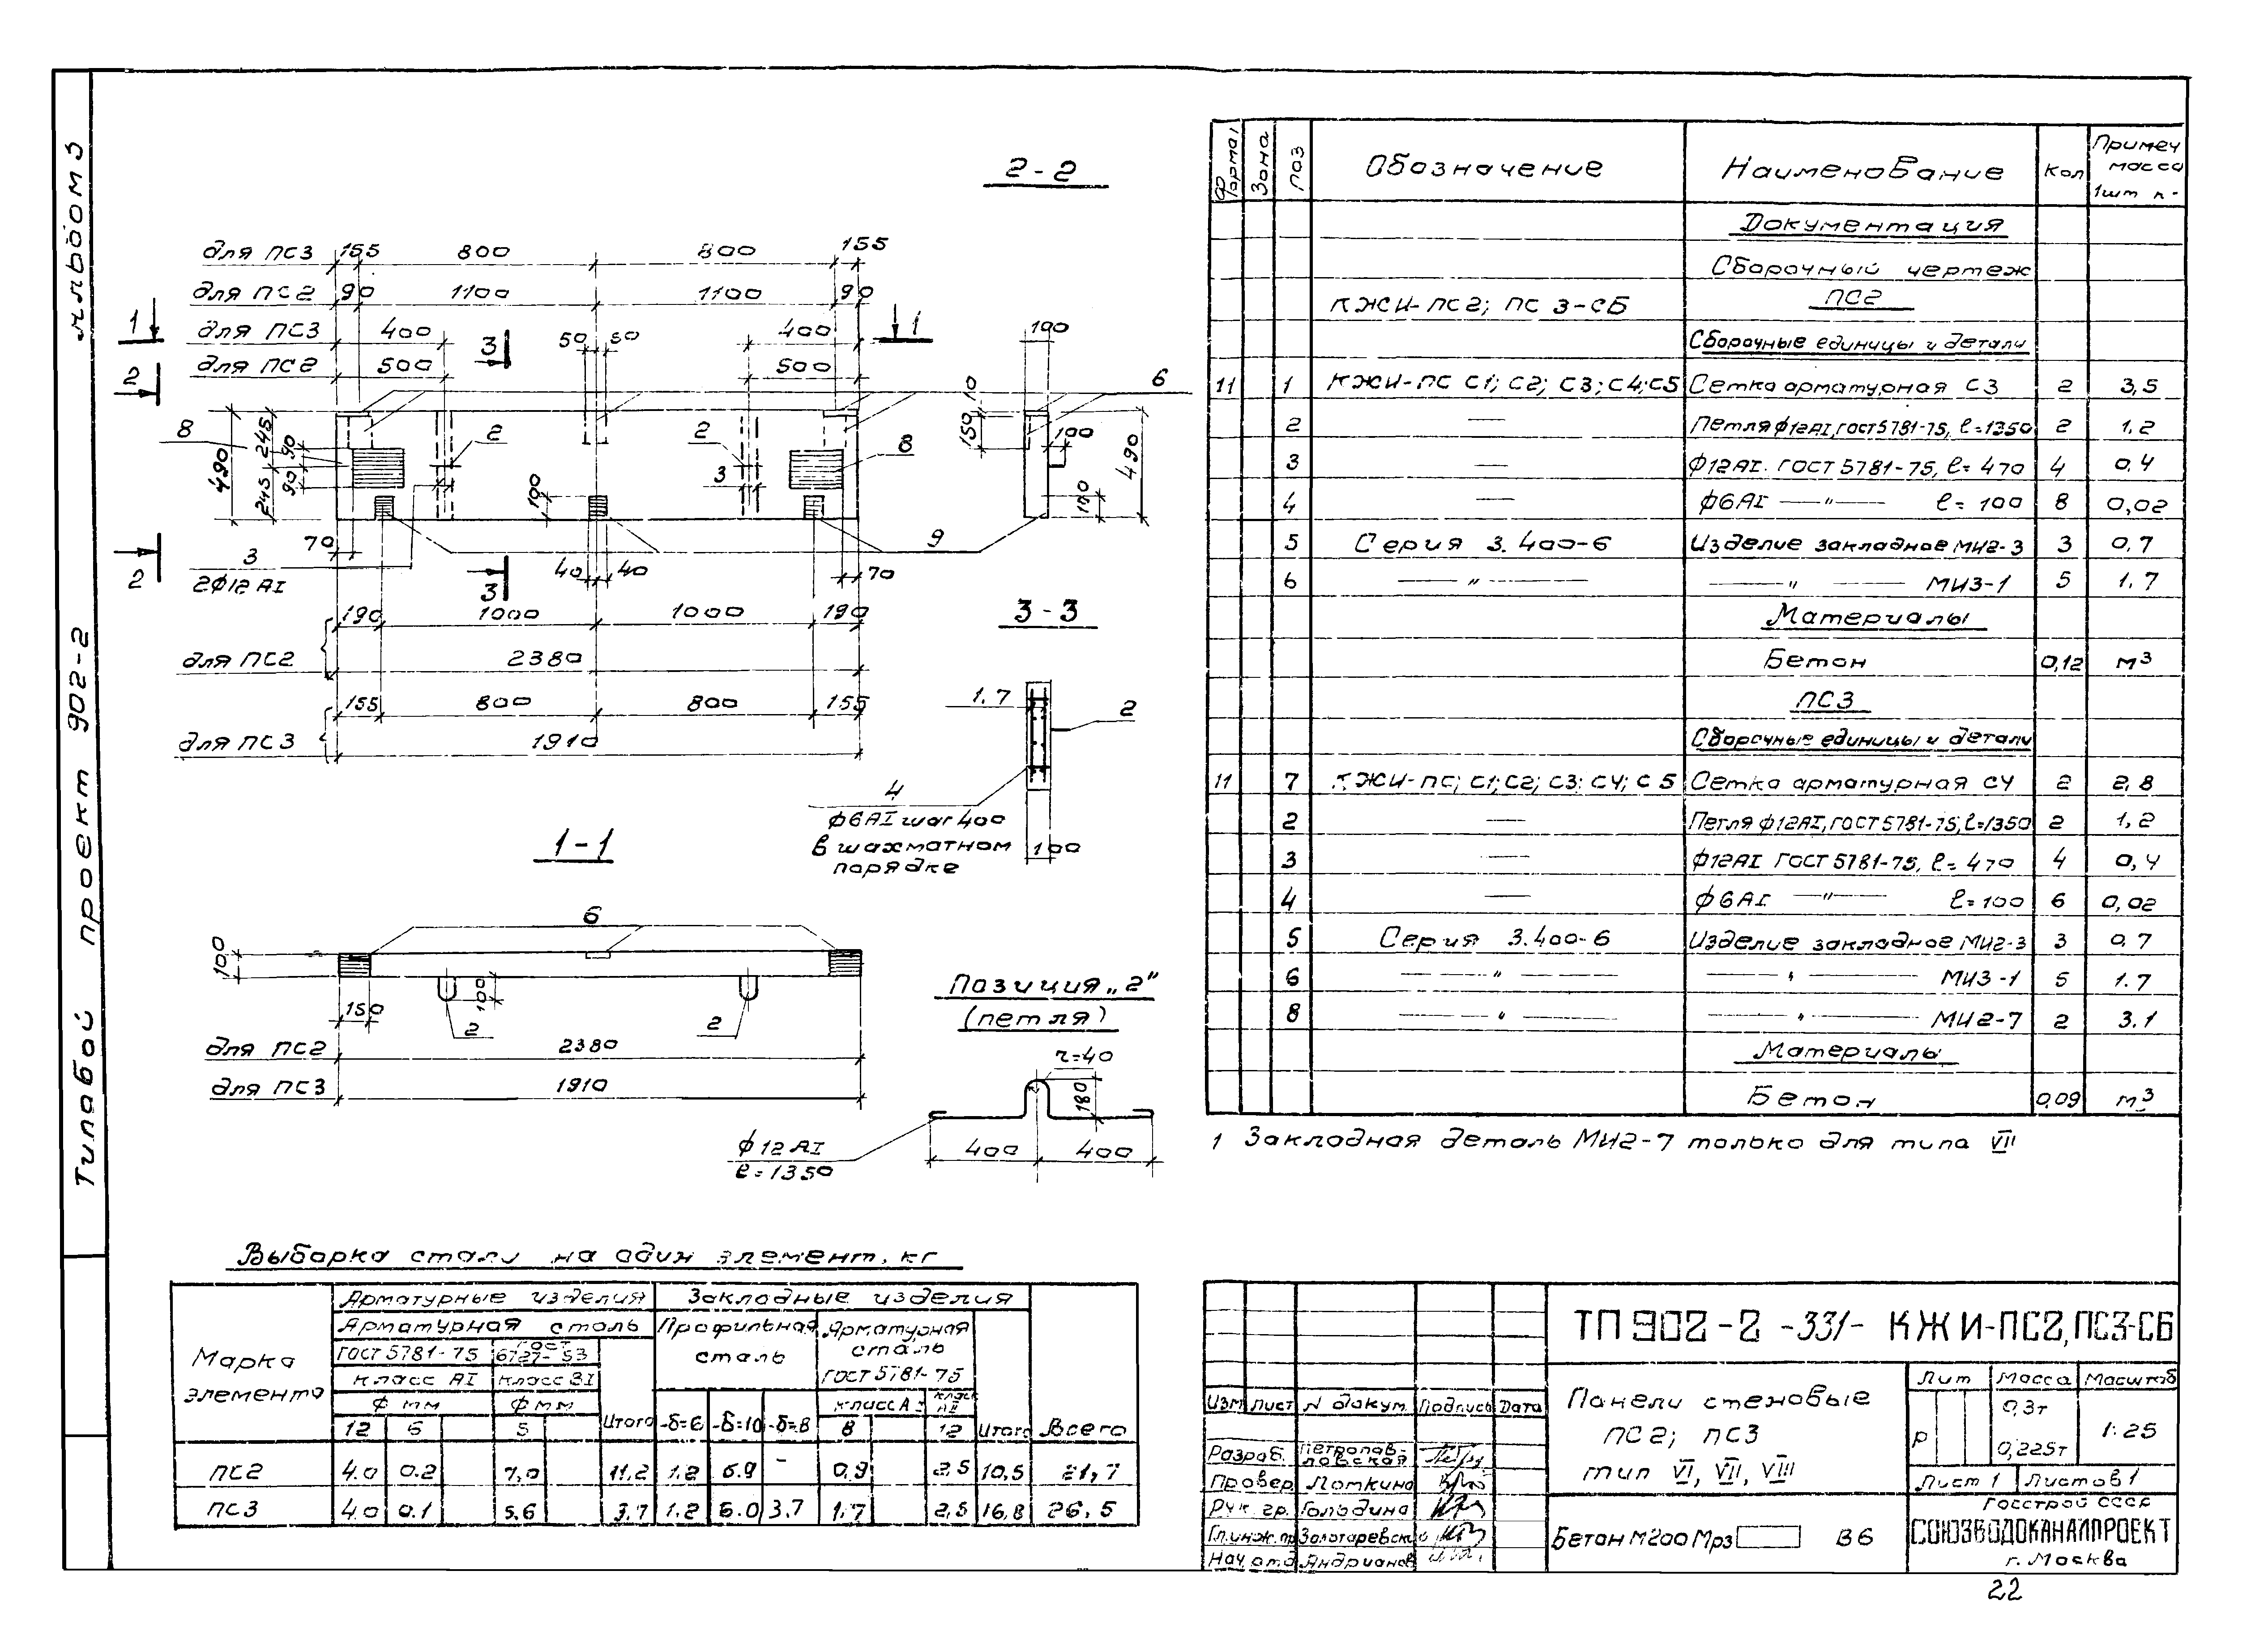 Альбом 3
Типовой проект 902-2
2-2
для ПС3 155 800 800 155
для ПС2 90 1100 1100 90
для ПС3 400 50 50 400
для ПС2 500 500
1 1
2 2
3 3
490 245 245 90 90
8 2 2 8 6
3
100
70 40 40 70
9
3
2ф12АI
190 1000 1000 190
для ПС2 2380
155 800 800 155
для ПС3 1910
100
10
150
100
490
100
3-3
1.7
2
4
ф6АI шаг 400
в шахматном
порядке
100
1-1
6
100
150
100
2 2
для ПС2 2380
для ПС3 1910
Позиция „2"
(петля)
r=40
180
ф12АI
ℓ=1350
400 400
Формат Зона Поз Обозначение Наименование Кол Примеч масса 1шт
Документация
Сборочный чертеж
КЖИ-ПС2; ПС3-СБ ПС2
Сборочные единицы и детали
11 1 КЖИ-ПС С1; С2; С3; С4; С5 Сетка арматурная С3 2 3,5
2 — Петля ф12АI, ГОСТ 5781-75, ℓ=1350 2 1.2
3 — ф12АI. ГОСТ 5781-75, ℓ=470 4 0.4
4 — ф6АI —"— ℓ=100 8 0,02
5 Серия 3.400-6 Изделие закладное МИ2-3 3 0.7
6 —"— —"— МИ3-1 5 1.7
Материалы
Бетон 0,12 м3
ПС3
Сборочные единицы и детали
11 7 КЖИ-ПС; С1; С2; С3; С4; С5 Сетка арматурная С4 2 2,8
2 — Петля ф12АI, ГОСТ 5781-75, ℓ=1350 2 1,2
3 — ф12АI ГОСТ 5781-75, ℓ=470 4 0,4
4 — ф6АI —"— ℓ=100 6 0,02
5 Серия 3.400-6 Изделие закладное МИ2-3 3 0.7
6 —"— —"— МИ3-1 5 1.7
8 —"— —"— МИ2-7 2 3.1
Материалы
Бетон 0,09 м3
1 Закладная деталь МИ2-7 только для типа VII
Выборка стали на один элемент, кг
Марка элемента
Арматурные изделия Закладные изделия
Арматурная сталь Профильная сталь Арматурная сталь
ГОСТ 5781-75 ГОСТ 6727-53 ГОСТ 5781-75
класс АI класс ВI класс А класс АII
ф мм ф мм
12 6 5 Итого -δ=6 -δ=10 -δ=8 8 12 Итого Всего
ПС2 4.0 0.2 7,0 11,2 1.2 6.9 - 0,9 2,5 10,5 21,7
ПС3 4.0 0.1 5,6 3,7 1.2 6.0 3.7 1.7 2,5 16,8 26,5
ТП 902-2-331- КЖИ-ПС2, ПС3-СБ
Изм Лист N докум. Подпись Дата
Разраб. Петропавловская
Провер Лоткина
Рук. гр. Гольдина
Гл.инж.пр Золотаревский
Нач. отд Андрианов
Панели стеновые
ПС2; ПС3
тип VI, VII, VIII
Лит Масса Масштаб
Р 0,3т 0,225т 1:25
Лист 1 Листов 1
Бетон М200 Мрз В6
Госстрой СССР
СОЮЗВОДОКАНАЛПРОЕКТ
г. Москва
22